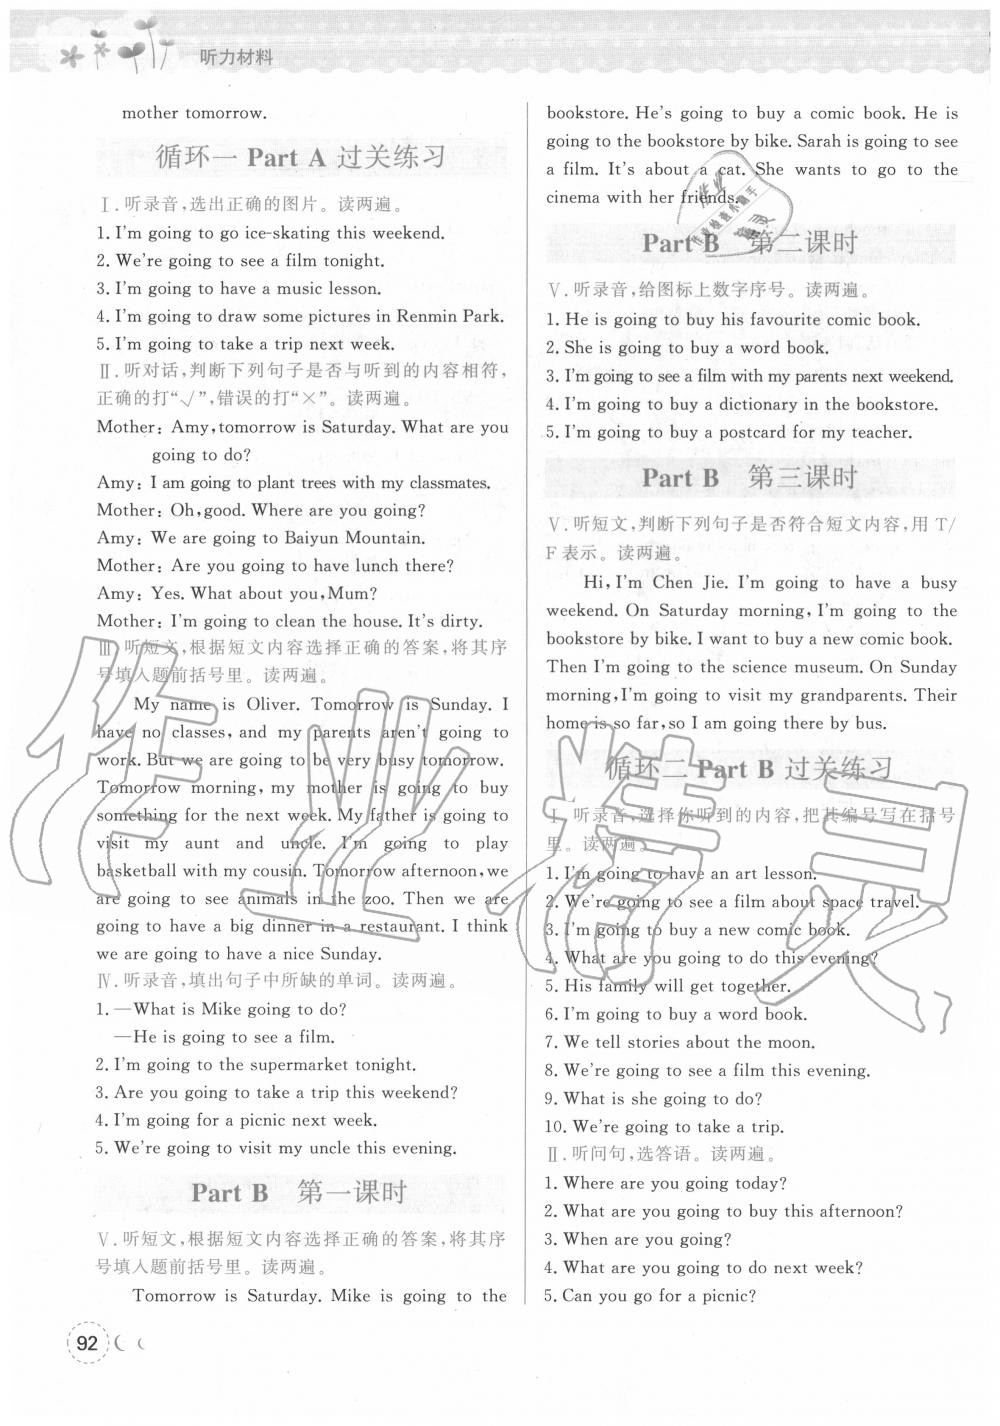 听力材料
mother tomorrow.
循环一 Part A 过关练习
Ⅰ.听录音,选出正确的图片。读两遍。
1. I'm going to go ice-skating this weekend.
2. We're going to see a film tonight.
3. I'm going to have a music lesson.
4. I'm going to draw some pictures in Renmin Park.
5. I'm going to take a trip next week.
Ⅱ.听对话,判断下列句子是否与听到的内容相符,
正确的打“√”,错误的打“×”。读两遍。
Mother: Amy,tomorrow is Saturday. What are you
going to do?
Amy: I am going to plant trees with my classmates.
Mother: Oh,good. Where are you going?
Amy: We are going to Baiyun Mountain.
Mother: Are you going to have lunch there?
Amy: Yes. What about you,Mum?
Mother: I'm going to clean the house. It's dirty.
Ⅲ.听短文,根据短文内容选择正确的答案,将其序
号填入题前括号里。读两遍。
My name is Oliver. Tomorrow is Sunday. I
have no classes, and my parents aren't going to
work. But we are going to be very busy tomorrow.
Tomorrow morning, my mother is going to buy
something for the next week. My father is going to
visit my aunt and uncle. I'm going to play
basketball with my cousin. Tomorrow afternoon,we
are going to see animals in the zoo. Then we are
going to have a big dinner in a restaurant. I think
we are going to have a nice Sunday.
Ⅳ.听录音,填出句子中所缺的单词。读两遍。
1. —What is Mike going to do?
—He is going to see a film.
2. I'm going to the supermarket tonight.
3. Are you going to take a trip this weekend?
4. I'm going for a picnic next week.
5. We're going to visit my uncle this evening.
Part B 第一课时
Ⅴ.听短文,根据短文内容选择正确的答案,将其序
号填入题前括号里。读两遍。
Tomorrow is Saturday. Mike is going to the
92
bookstore. He's going to buy a comic book. He is
going to the bookstore by bike. Sarah is going to see
a film. It's about a cat. She wants to go to the
cinema with her friends.
Part B 第二课时
Ⅴ.听录音,给图标上数字序号。读两遍。
1. He is going to buy his favourite comic book.
2. She is going to buy a word book.
3. I'm going to see a film with my parents next weekend.
4. I'm going to buy a dictionary in the bookstore.
5. I'm going to buy a postcard for my teacher.
Part B 第三课时
Ⅴ.听短文,判断下列句子是否符合短文内容,用 T/
F 表示。读两遍。
Hi,I'm Chen Jie. I'm going to have a busy
weekend. On Saturday morning,I'm going to the
bookstore by bike. I want to buy a new comic book.
Then I'm going to the science museum. On Sunday
morning,I'm going to visit my grandparents. Their
home is so far,so I am going there by bus.
循环二 Part B 过关练习
Ⅰ.听录音,选择你听到的内容,把其编号写在括号
里。读两遍。
1. I'm going to have an art lesson.
2. We're going to see a film about space travel.
3. I'm going to buy a new comic book.
4. What are you going to do this evening?
5. His family will get together.
6. I'm going to buy a word book.
7. We tell stories about the moon.
8. We're going to see a film this evening.
9. What is she going to do?
10. We're going to take a trip.
Ⅱ.听问句,选答语。读两遍。
1. Where are you going today?
2. What are you going to buy this afternoon?
3. When are you going?
4. What are you going to do next week?
5. Can you go for a picnic?
作业精灵